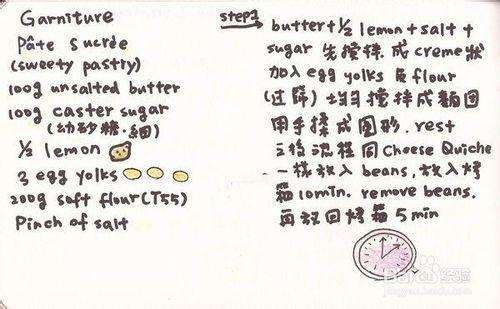 Garniture
Pâte Sucrée
(sweety pastry)
100g unsalted butter
100g caster sugar
(幼砂糖.細)
½ lemon
3 egg yolks
200g soft flour(T55)
Pinch of salt
step1 → butter+½ lemon+salt+
sugar 先攪拌 成creme狀
加入egg yolks 及 flour
(过篩) 均勻攪拌成麵团
用手揉成圆形. rest
之後流程同Cheese Quiche
一樣放入 beans, 放入烤
箱10min. remove beans.
再放回烤箱5min
Baidu经验
jingyan.baidu.com